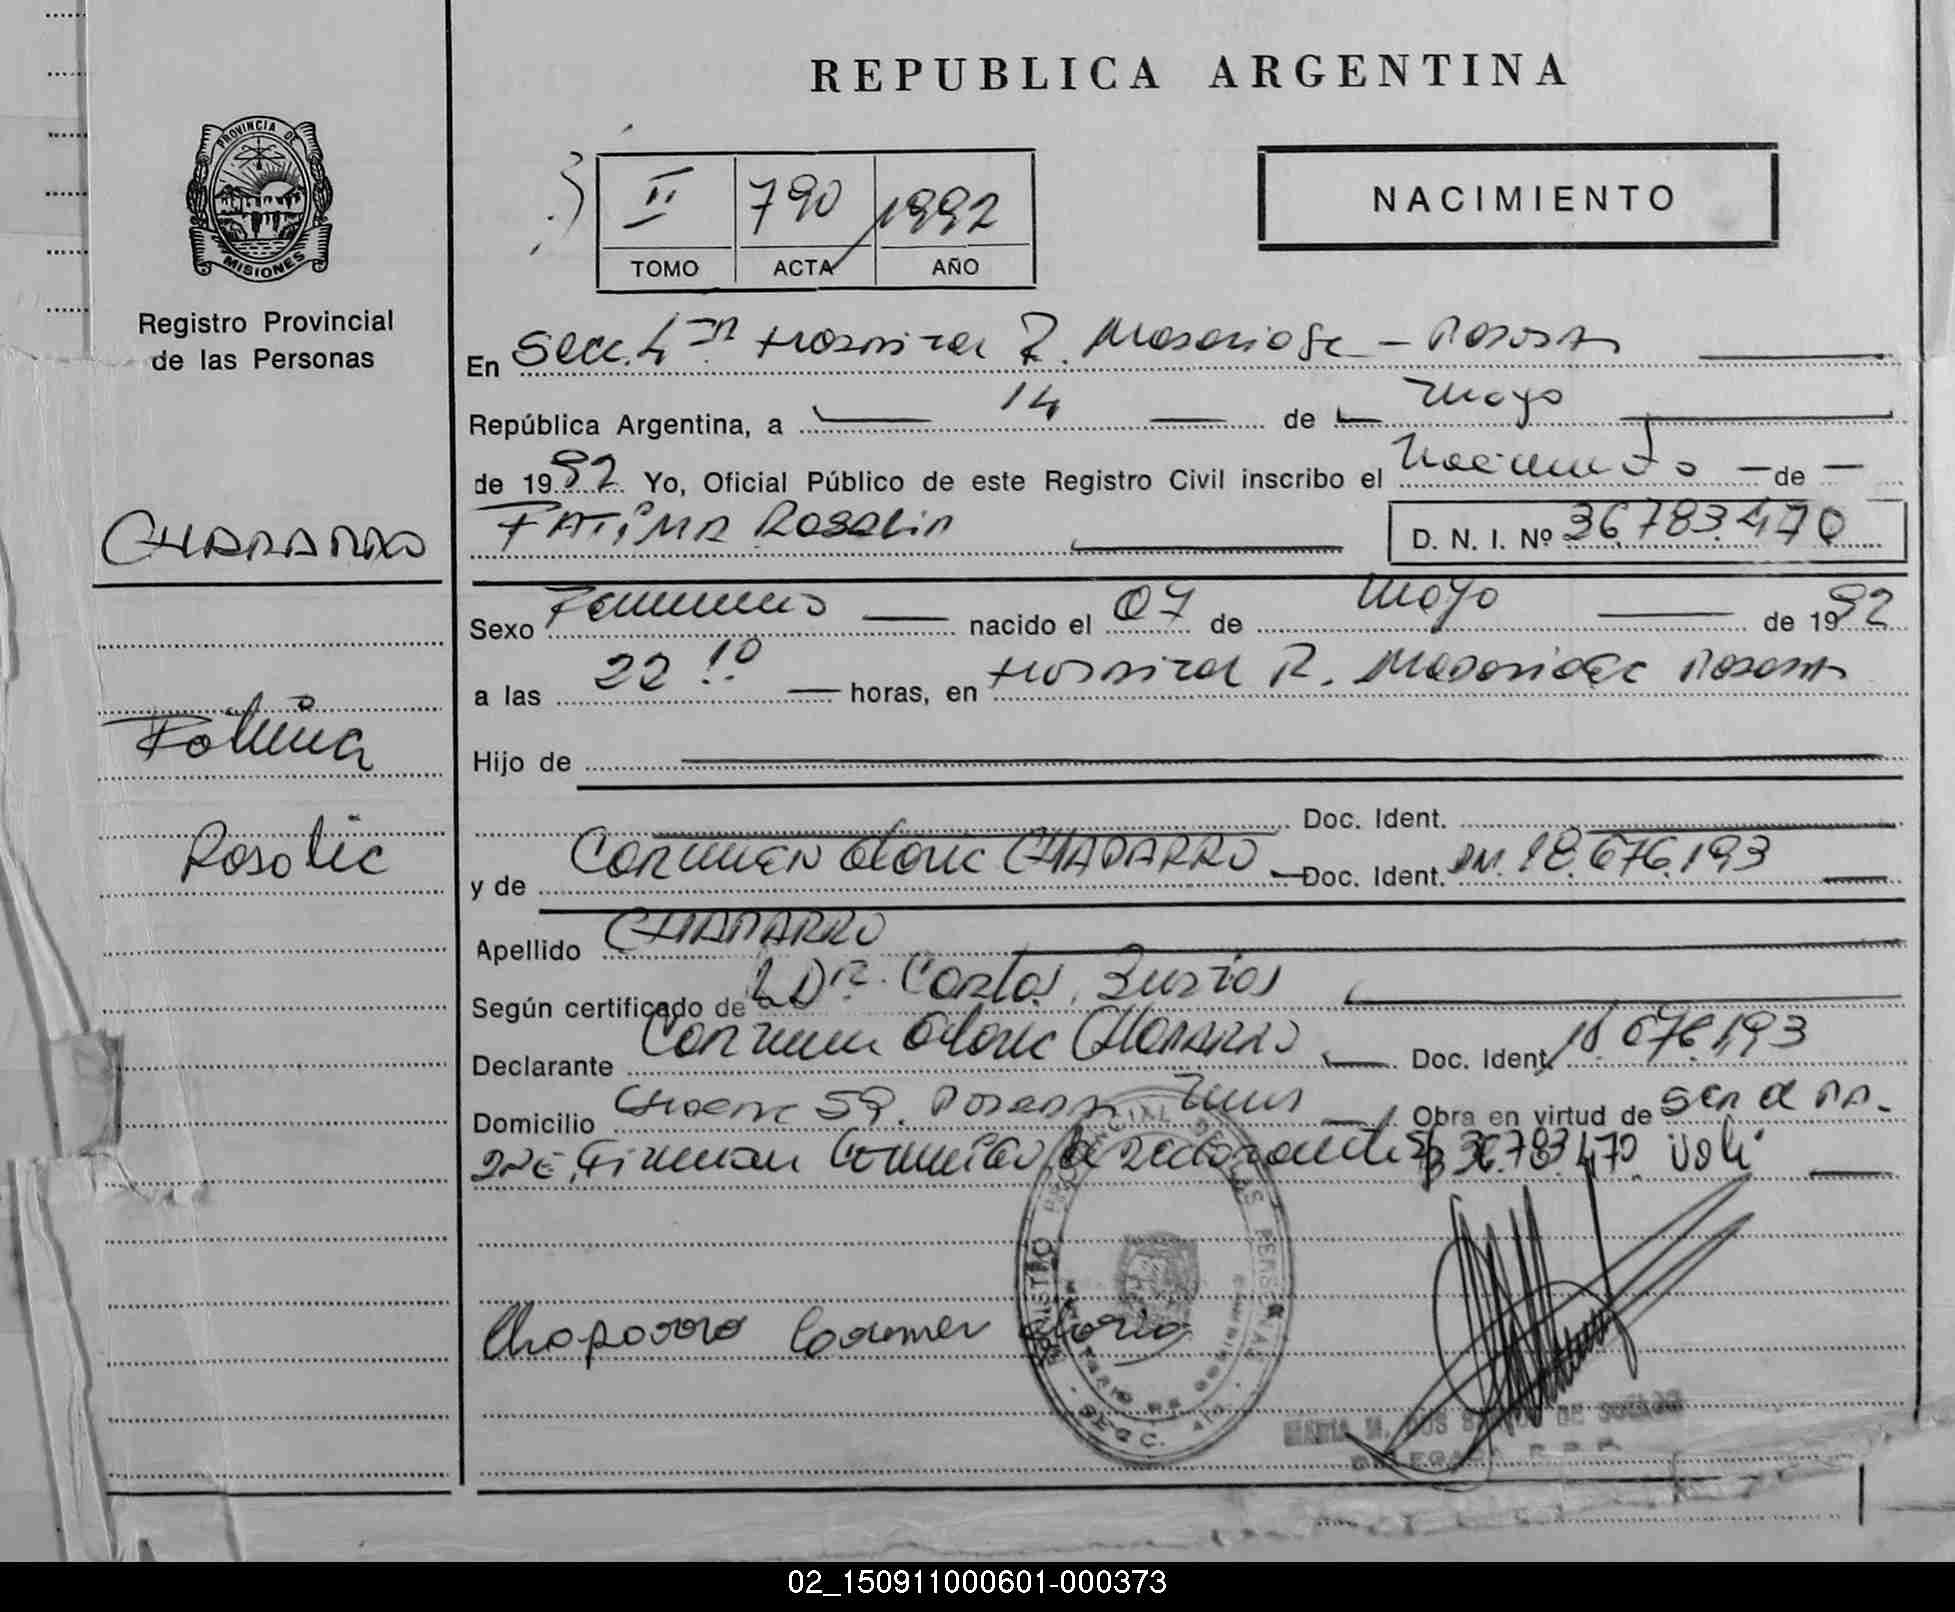 REPUBLICA ARGENTINA
PROVINCIA DE
MISIONES
Registro Provincial
de las Personas
II 790 1992
TOMO ACTA AÑO
NACIMIENTO
En Secc. 4ta Hospital R. Madariaga - Posadas
República Argentina, a 14 de Mayo
de 1992 Yo, Oficial Público de este Registro Civil inscribo el Nacimiento - de -
CHAPARRO
FATIMA Rosalia
D. N. I. Nº 36.783.470
Sexo Femenino nacido el 07 de Mayo de 1992
a las 22 10 horas, en Hospital R. Madariaga Posadas
Fatima
Hijo de
Doc. Ident.
Rosalia
y de CARMEN Gloria CHAPARRO Doc. Ident. DNI. 18.676.193
Apellido CHAPARRO
Según certificado de Dr. Carlos
Declarante Carmen Gloria CHAPARRO Doc. Ident. 18.676.193
Domicilio 59. Posadas Mnes Obra en virtud de
Firman 36.783.470 Vale
Chaparro Carmen Gloria
REGISTRO PROVINCIAL DE LAS PERSONAS
SECC. 4ta
MARIA M. DOS DE
R. P. P.
02_150911000601-000373